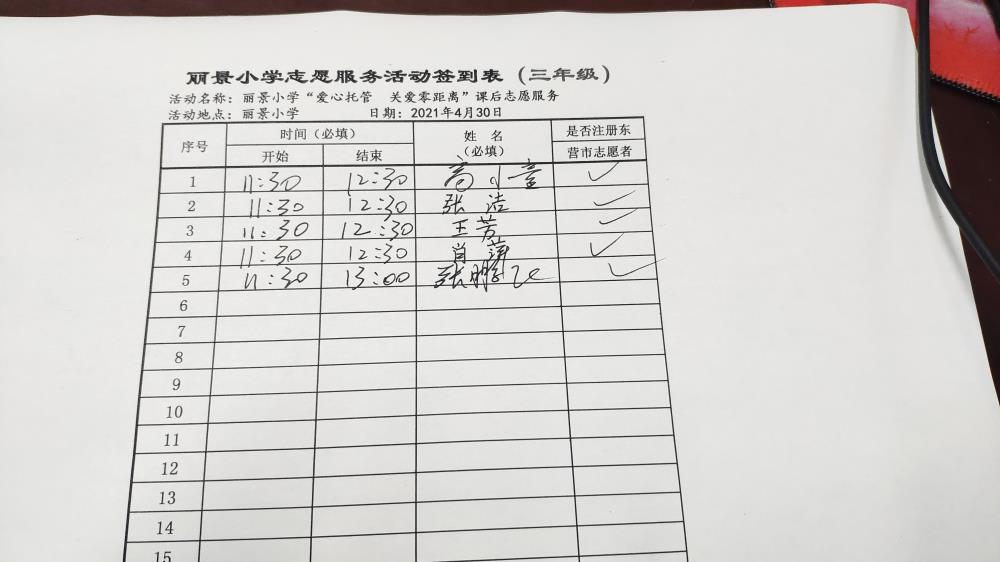 丽景小学志愿服务活动签到表（三年级）
活动名称：丽景小学“爱心托管 关爱零距离”课后志愿服务
活动地点：丽景小学 日期：2021年4月30日
序号 时间（必填） 姓 名（必填） 是否注册东营市志愿者
开始 结束
1 11:30 12:30 高小童 ✓
2 11:30 12:30 张洁 ✓
3 11:30 12:30 王芳 ✓
4 11:30 12:30 肖萍 ✓
5 11:30 13:00 张鹏 ✓
6
7
8
9
10
11
12
13
14
15